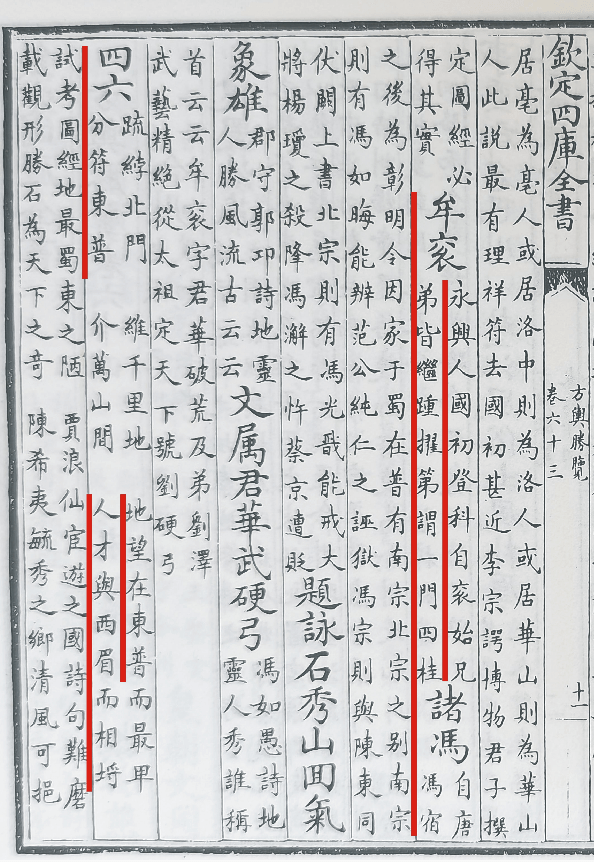 欽定四庫全書
方輿勝覽
卷六十三
十一
居亳為亳人或居洛中則為洛人或居華山則為華山
人此説最有理祥符去國初甚近李宗諤博物君子撰
定圖經必
得其實
牟衮
永興人國初登科自衮始兄
弟皆繼踵擢第謂一門四桂
諸馮
自唐
馮宿
之後為彰明令因家于蜀在普有南宗北宗之别南宗
則有馮如晦能辨范公純仁之誣獄馮宗則與陳東同
伏闕上書北宗則有馮光戩能戒大
將楊瓊之殺降馮澥之忤蔡京遭貶
題詠
石秀山回氣
象雄
郡守郭卭詩地靈
人勝風流古云云
文属君華武硬弓
馮如愚詩地
靈人秀誰稱
首云云牟衮字君華破荒及弟劉澤
武藝精絕從太祖定天下號劉硬弓
四六
疏綍北門
分符東普
維千里地
介萬山間
地望在東普而最卑
人才與西眉而相埒
試考圖經地最蜀東之陋
載觀形勝石為天下之竒
賈浪仙宦遊之國詩句難磨
陳希夷毓秀之鄉清風可挹